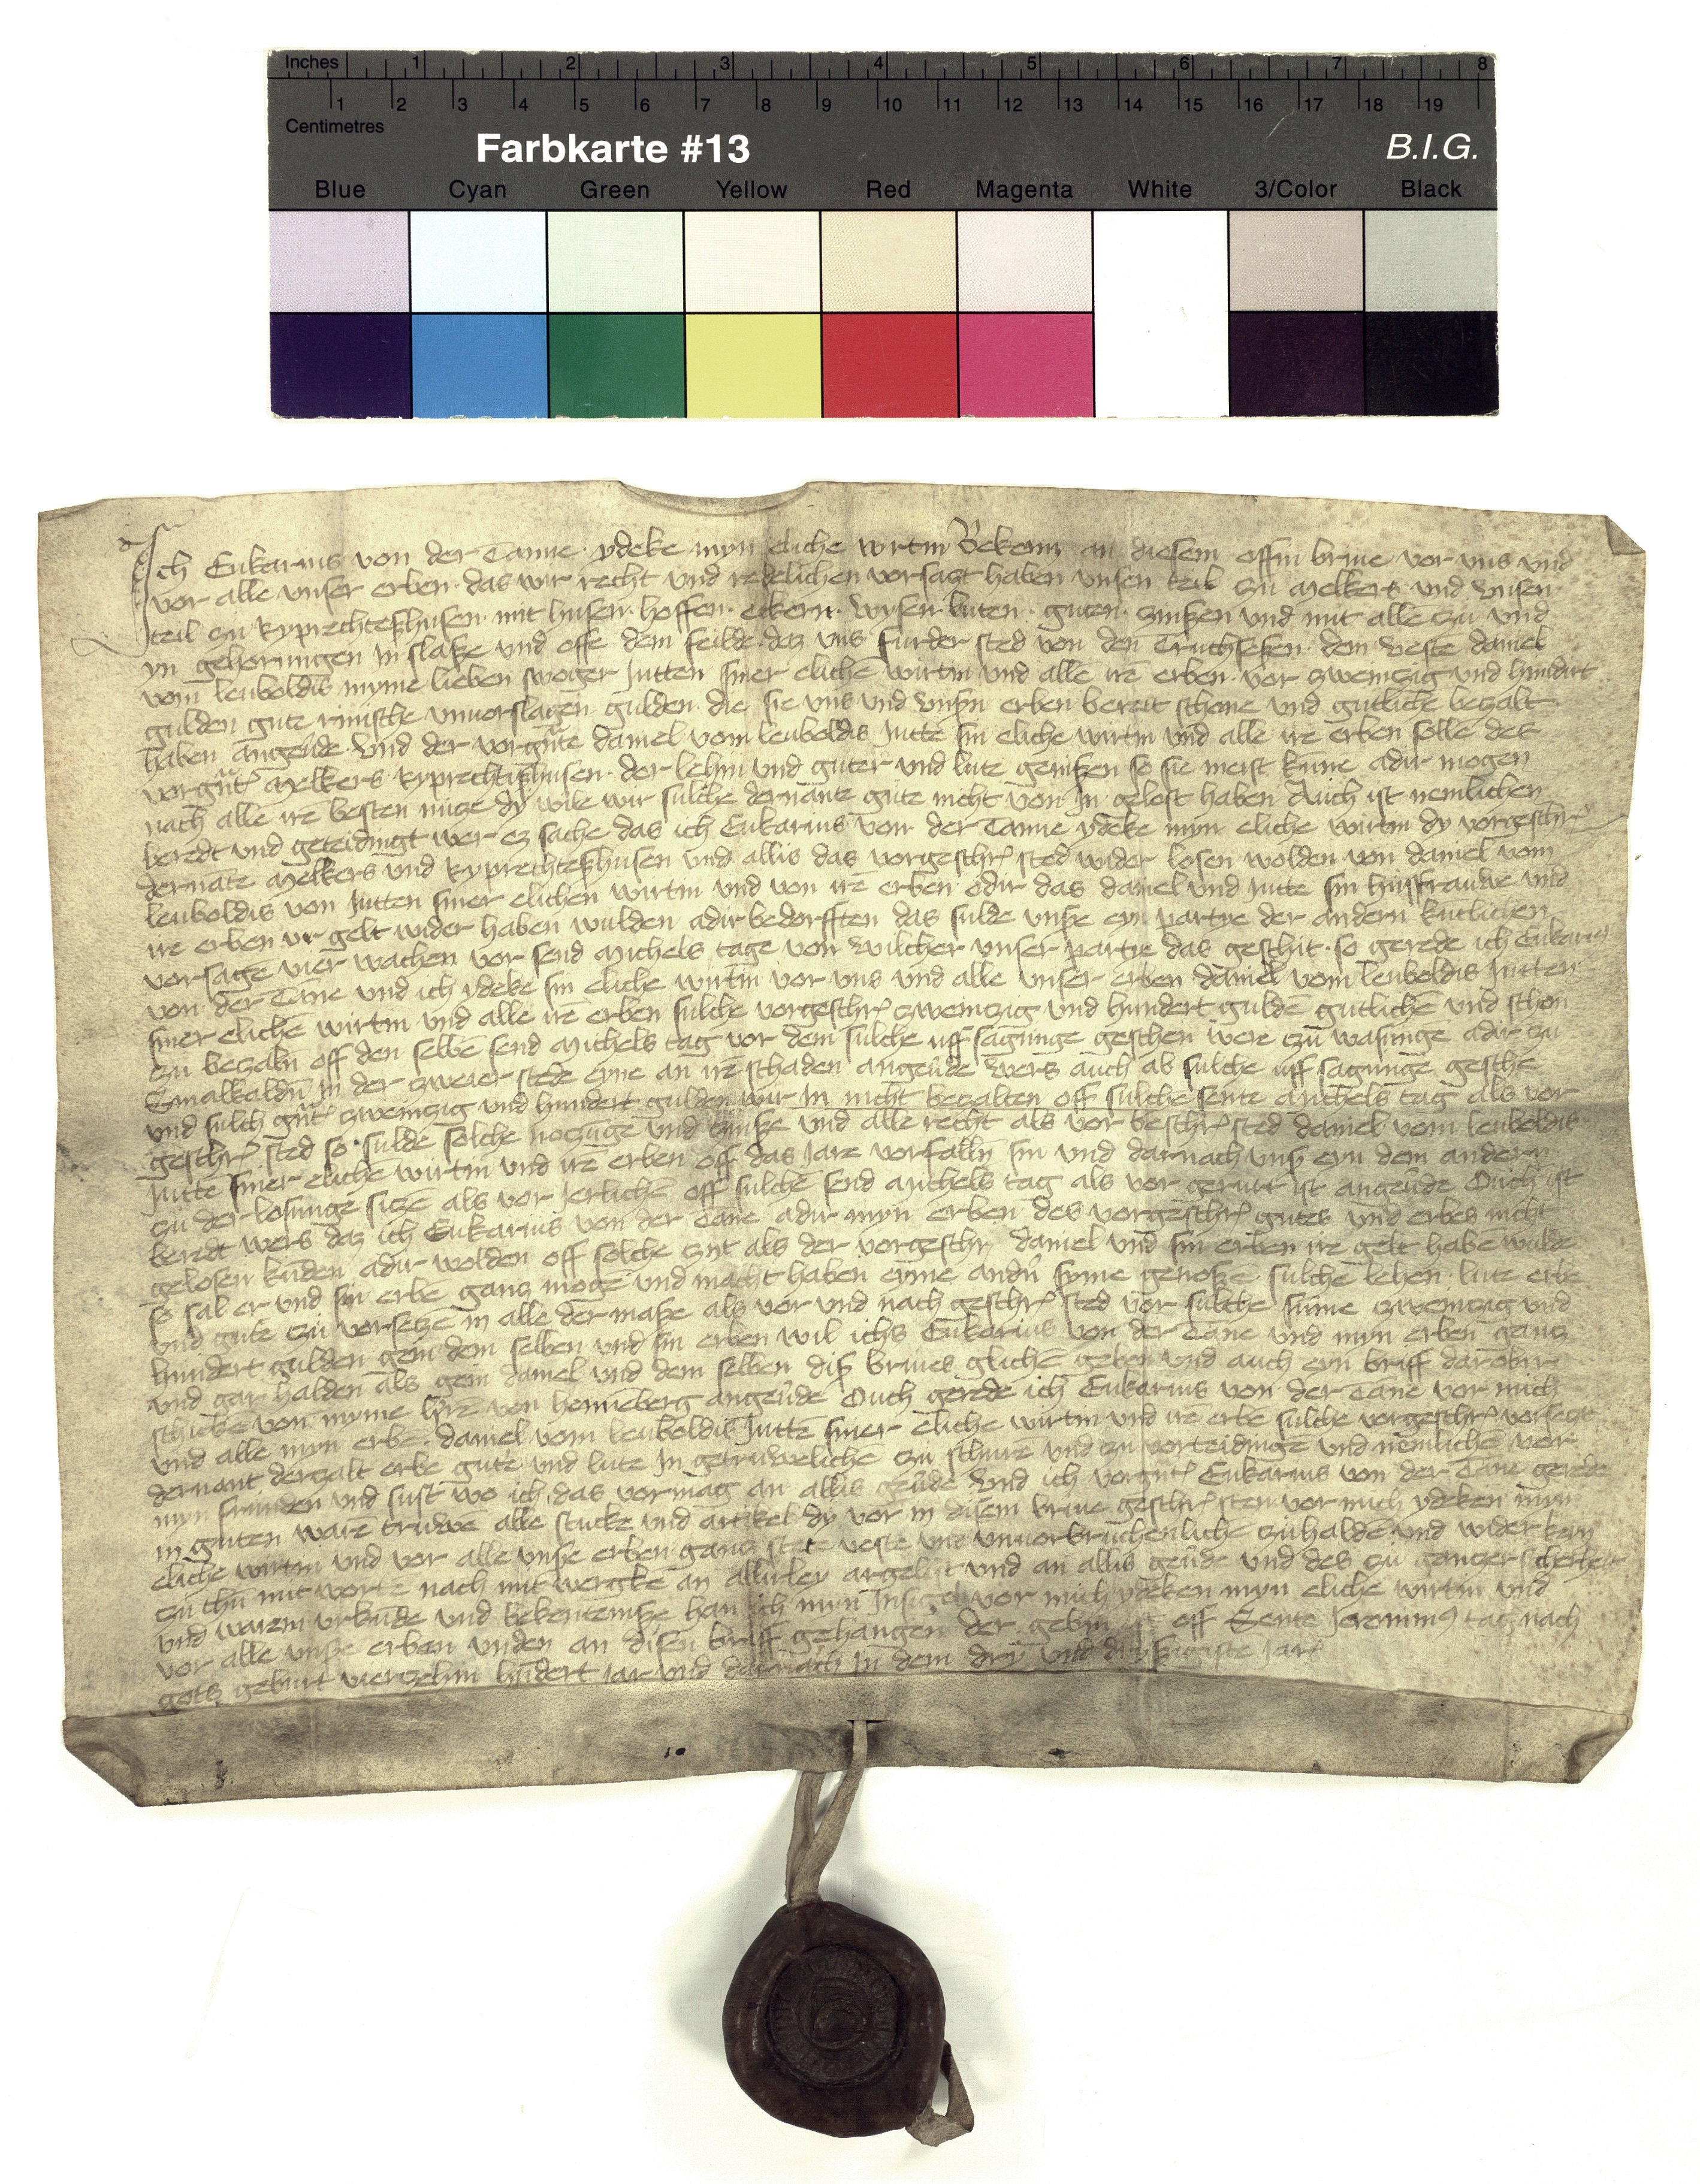 Inches 1 2 3 4 5 6 7 8
1 2 3 4 5 6 7 8 9 10 11 12 13 14 15 16 17 18 19
Centimetres
Farbkarte #13 B.I.G.
Blue Cyan Green Yellow Red Magenta White 3/Color Black
Ich Eukarius von der Tanne ydeke myn eliche wirtin Bekenn an diesem offin briue vor vns vnd
vor alle vnser erben das wir recht vnd redelichen vorsatzt haben vnsen teil zu Melkers vnd vnsen
teil zu Rypprechteßhusen mit husen hoffen eckern wysen luten guten zinßen vnd mit alle zu vnd
yn gehorungen In slaße vnd offe dem feilde daz vns furder sted von den Truchseßen dem veste daniel
vom leuboldis myme lieben swoger Jutten siner elichē wirtin vnd alle irē erben vor zweinzig vnd hundirt
gulden gute rinische vnuorslagen gulden die sie vns vnd vnsyn erben bereit schone vnd gutliche bezalt
haben angeūde Vnd der vorgn̄te daniel vom leuboldis Jutte sin eliche wirtin vnd alle ire erben solle des
vorgn̄t Melkers Rypprechtißhusen der lehin vnd guter vnd lute genißen so sie meist kune adir mogen
nach alle irē besten nutze dy wile wir sulche dernante gute nicht von In gelost haben Auch ist nemlichen
beredt vnd geteidingt wer ez sache das ich Eukarius von der Tanne ydeke myn eliche wirtin dy vorgeschr
dernāte Melkers vnd Rypprechteßhusen vnd allis das vorgeschr sted wider losen wolden von daniel vom
leuboldis von Jutten siner elichen wirtin vnd von irē erben odir das daniel vnd Jutte sin husfrauwe vnd
ire erben ir gelt wider haben wulden adir bedorfften das sulde vnße eyn partye der andern kutlichen
vorsagē vier wachen vor send Michels tage von wilcher vnser partye das geschit so gerede ich Eukarius
von der Tāne vnd ich ydeke sin eliche wirtin vor vns vnd alle vnser erben daniel vom leuboldis Jutten
siner elichē wirtin vnd alle irē erben sulche vorgeschr zweinzig vnd hundert guldē gutlichē vnd schon
zu bezaln off den selbē send Michels tag vor dem sulche uff sagunge geschen were zu wasunge adir zu
Smalkaldn̄ in der zweier stede eyne an irē schaden angeūde Wers auch ab sulche uff sagunge geschē
vnd sulch gn̄t zweinzig vnd hundert gulden wir In nicht bezalten off sulche sente Michels tag als vor
geschr sted so sulde solche nozunge vnd zinße vnd alle recht als vor beschr sted daniel vom leuboldis
Jutte siner eliche wirtin vnd irē erben off das Jare vorfalln̄ sin vnd darnach vnß eyn dem andern
zu der losunge sitzē als vor Jerlichē off sulchē send Michels tag als vor gerurt ist angeūde Ouch ist
beredt wers daz ich Eukarius von der Tāne adir myn erben des vorgeschr gutes vnd erbes nicht
gelosen kūden adir wolden off solche zyt als der vorgeschr daniel vnd sin erben ire gelt habe wulde
so sal er vnd sin erbē ganz moge vnd macht haben eyme andn̄ syme genoße sulche lehen lute erbe
vnd gute zu vorsetzē in alle der maße als vor vnd nach geschr sted vor sulche sūme zweinzig vnd
hundert gulden gein dem selben vnd sin erben wil ichs Eukarius von der Tāne vnd myn erben ganz
vnd gar halden als gein daniel vnd dem selben diß briues glichē geben vnd auch eyn briff darobir
schicke von myme h'rē von hennēberg angeūde Ouch gerede ich Eukarius von der Tāne vor mich
vnd alle myn erbe daniel vom leuboldis Juttē siner elichē wirtin vnd irē erbē sulche vorgeschr vorsetzt
dernant derzalt erbe gute vnd lute In getruwelichē zu schure vnd zu vorteidingē vnd nemlichē vor
myn frunden vnd sust wo ich das vormag an allis geūde Vnd ich vorgn̄t Eukarius von der Tāne gerede
in guten warē truwē alle stucke vnd artikel dy vor in disem briue geschr sten vor mich ydeken myn
eliche wirtin vnd vor alle vnße erben ganz stete veste vnd vnuorbruchenlichē zuhaldē vnd wider keyn
zu thū mit worte nach mit wergke an allirley argelist vnd an allis geūde vnd des zu ganzer sicherheit
vnd warem vrkunde vnd bekentniße han ich myn Insigel vor mich ydeken myn eliche wirtin vnd
vor alle vnße erben vnden an disen briff gehangen der gebin ist off Sente Jeronimus tag nach
gots geburt vierzehin hundert Jar vnd darnach In dem dry vnd dryßigiste Jar